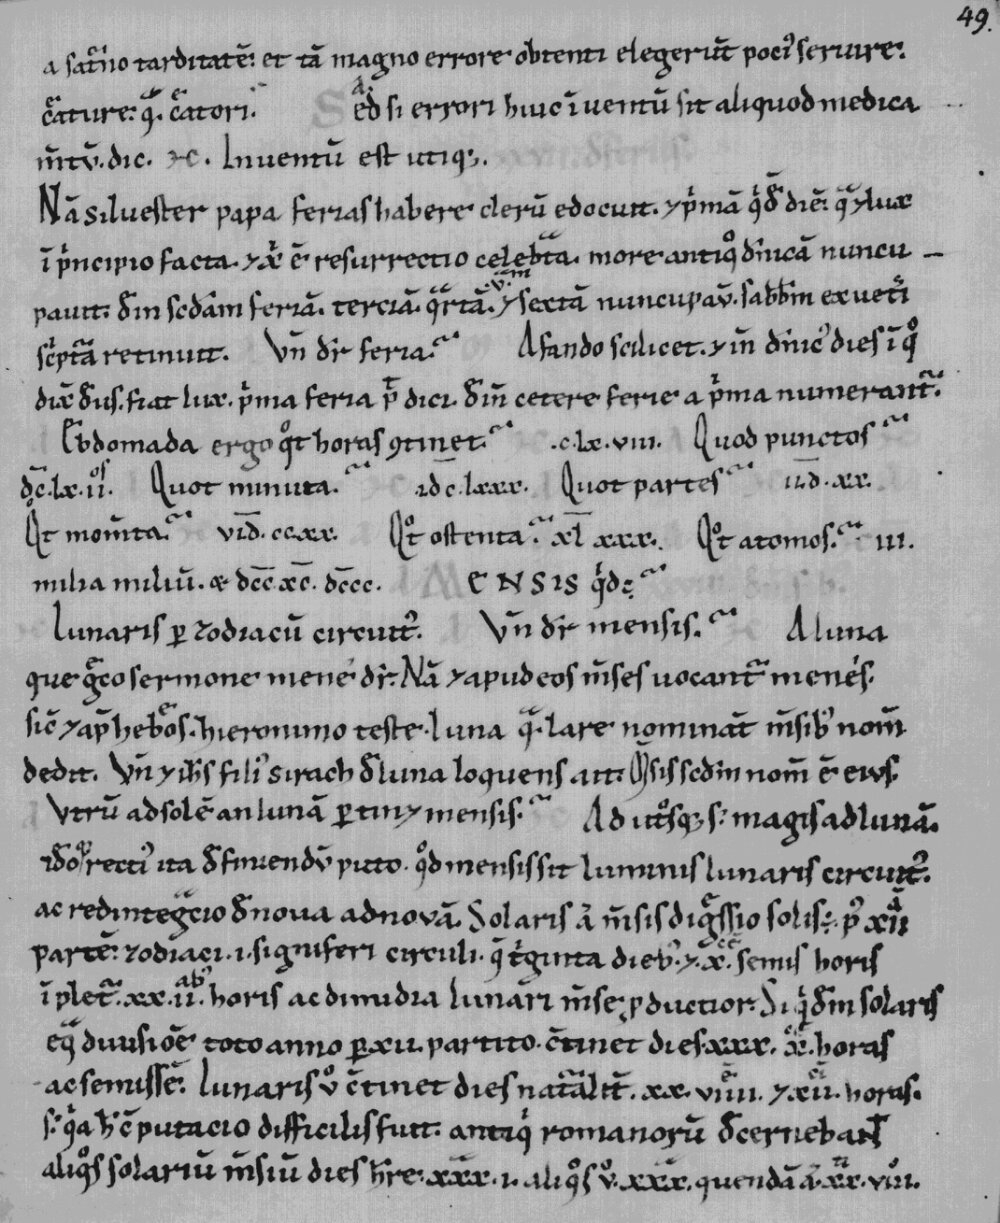 49.
a sat̄no tarditatē. et tā magno errore obtenti elegerūt poci᾽ seruire.
c̄ature. q̄. c̄atori. Sed si errori huic īuentū sit aliquod medica
m̄tū. dic. Inuentū est utiq;.
Nā siluester papa ferias habere clerū edocuit. ⁊ p̄mā q̄d diē. q̄ ⁊ lux
ī p̄ncipio facta. ⁊ x̄ ē resurrectio celeb̄ta. more antiq̊ dn̄icā nuncu
pauit. d̄in scd̄am feriā. terciā. q̄rtā. v̄m ⁊ sextā nuncupaū. sab̄bm ex uet̄i
sc̄ptā retinuit. Vn̄ dr̄ feria. A fando scilicet. ⁊ in dn̄ic᾽ dies ī q̊
dix̄ d̄us. fiat lux. p̄ma feria p̄t dici. d̄in̄ cetere ferie a p̄ma numerant᾽.
Ebdomada ergo q̊t horas ꝯtinet. .c.lx.viii. Quod punctos
dc̄.lx.ii. Quot minuta. id̄c.lxxx. Quot partes iid̄.xx.
Q̊t mom̄ta. vid̄.ccxx. Q̊t ostenta. xl̄ xxx. Q̊t atomos. iii.
milia miliū. ⁊ dcc̄ xc̄. dccc̄.
MENSIS q̄d ē
Lunaris ꝑ zodiacū circuit᾽. Vn̄ dr̄ mensis. A luna
que ḡco sermone mene dr̄. Nā ⁊ apud eos m̄ses uocant᾽ menes.
sic̄ ⁊ ap̄ hebōs. hieronimo teste. luna q̄. lare nominat̄ m̄sib᾽ nom̄
dedit. Vn̄ ⁊ ih̄s fili᾽ sirach d̄ luna loquens ait. M̄sis scd̄m nom̄ ē eius.
Vtrū ad solē an lunā ꝑtin⁊ mensis. Ad ut̊sq; s. magis ad lunā.
id̄o recti᾽ ita d̄finiendū puto. q̊d mensis sit luminis lunaris circuit᾽.
ac redinteḡcio d̄ noua ad nouā. Solaris ā m̄sis diḡssio solis. p᾽ xii
partē. zodiaci .i. signiferi circuli. q̄ t̄ginta dieb᾽. ⁊ x̄ semis horis
īplet᾽. xx.ii. horis ac dimidia lunari m̄se ꝓductior. Si q̄d̄m solaris
eq̄ diuisiōē toto anno ꝑ xii. partito. c̄tinet dies xxx. x̄. horas
ac semissē. Lunaris ů c̄tinet dies nat᾽alit̄. xx. viiii. ⁊ xii. horas.
s. q̄a h̄ c̄putacio difficilis fuit. antiq̄ romanorū d̄cernebant
aliq̊s solariū m̄siū dies h̄re. xxx.i. aliq̊s ů. xxx. quendā ā. xx. viii.